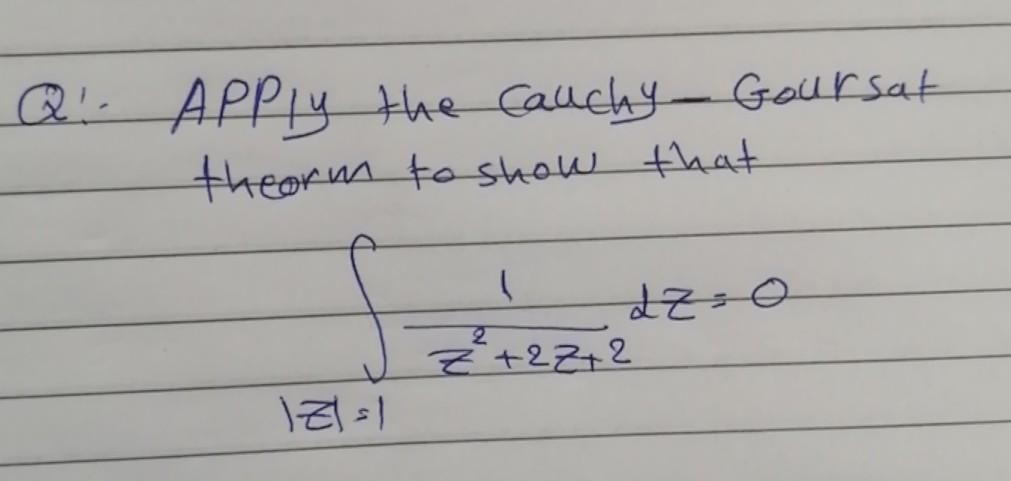 Q:- Apply the Cauchy-Goursat
theorm to show that
∫_{|z|=1} 1/(z²+2z+2) dz = 0